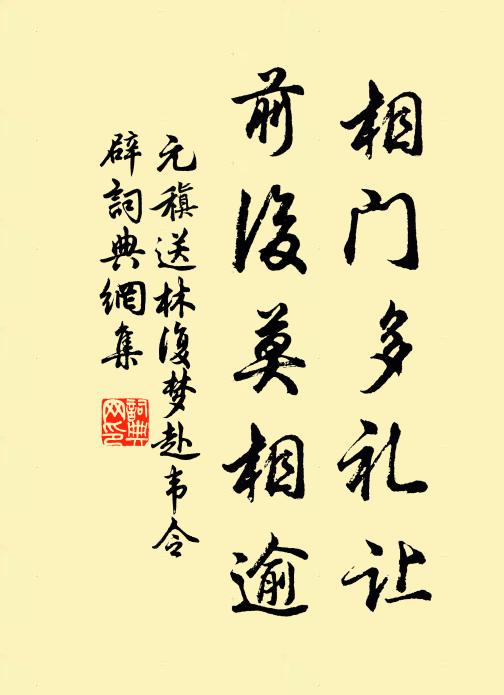 相门多礼让
前後莫相逾
元稹送林復梦赴韦令
辟詞典網集
詞典
网印